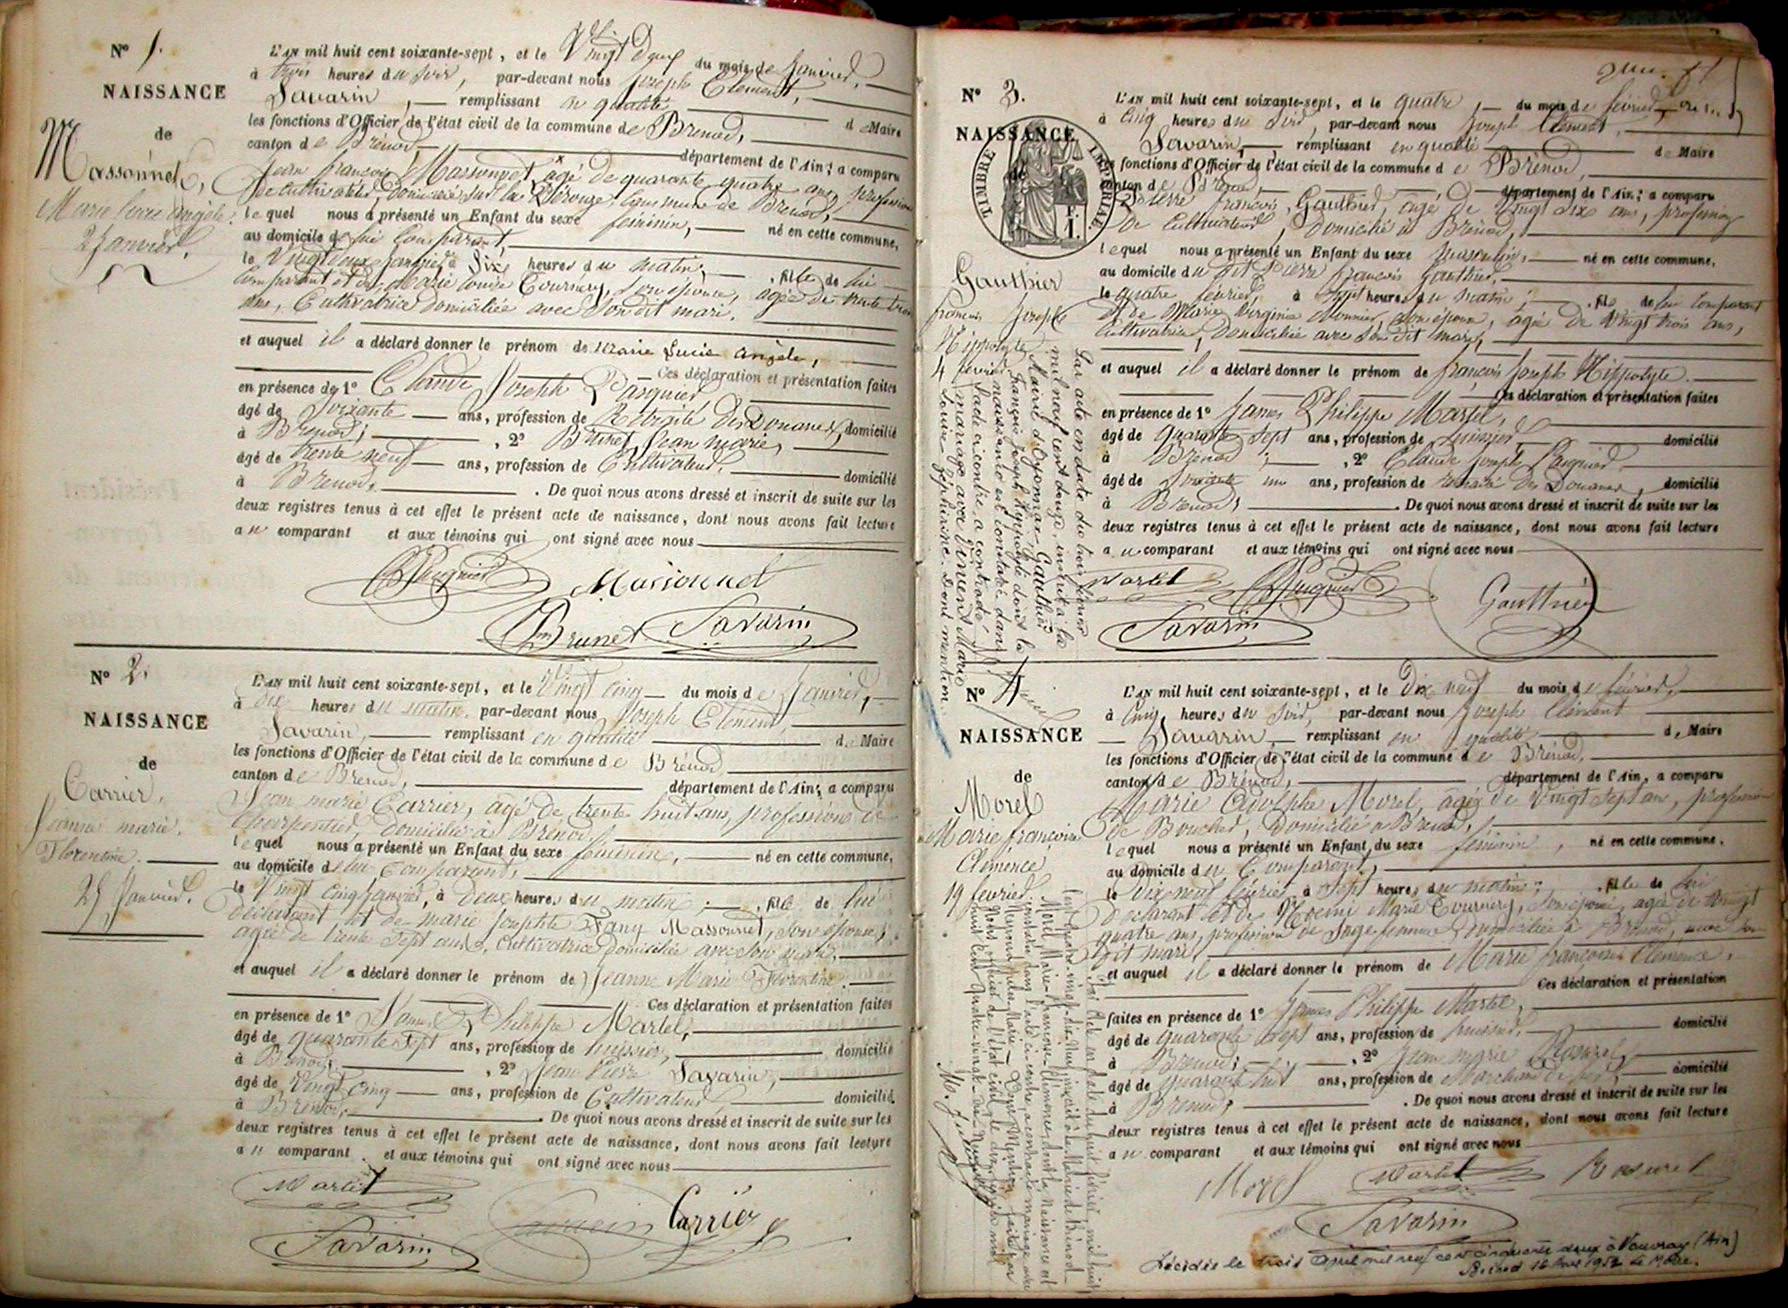 N° 1.
NAISSANCE
de
Massonnet,
Marie Lucie Angèle.
22 Janvier.
L'AN mil huit cent soixante-sept, et le Vingt deux du mois de Janvier,
à trois heures du soir, par-devant nous Joseph Clément,
Savarin, remplissant en qualité de Maire
les fonctions d'Officier de l'état civil de la commune de Brénod,
canton de Brénod département de l'Ain, a comparu
Jean françois Massonnet, âgé de quarante quatre ans, profession
de Cultivateur, domicilié Commune de Brénod,
lequel nous a présenté un Enfant du sexe féminin, né en cette commune,
au domicile de lui Comparant,
le Vingt deux Janvier à Six heures du matin, fille de lui
Comparant et de Marie Louise Tournery, son épouse, âgée de trente trois
ans, Cultivatrice domiciliée avec Son dit mari.
et auquel il a déclaré donner le prénom de Marie Lucie Angèle,
Ces déclaration et présentation faites
en présence de 1° Claude Joseph Pasquier
âgé de Soixante ans, profession de Retraité des Douanes, domicilié
à Brénod; , 2° Brunet, Jean Marie,
âgé de trente neuf ans, profession de Cultivateur, domicilié
à Brenod, . De quoi nous avons dressé et inscrit de suite sur les
deux registres tenus à cet effet le présent acte de naissance, dont nous avons fait lecture
au comparant et aux témoins qui ont signé avec nous
Pasquier Massonnet
Brunet Savarin
N° 2.
NAISSANCE
de
Carrier,
Jeanne marie
Florentine.
25 Janvier.
L'AN mil huit cent soixante-sept, et le Vingt cinq du mois de Janvier,
à dix heures du matin, par-devant nous Joseph Clément
Savarin, remplissant en qualité de Maire
les fonctions d'Officier de l'état civil de la commune de Brénod
canton de Brenod, département de l'Ain, a comparu
Jean marie Carrier, âgé de trente huit ans, profession de
Charpentier, domicilié à Brénod,
lequel nous a présenté un Enfant du sexe féminin, né en cette commune,
au domicile de lui Comparant,
le Vingt cinq Janvier, à Deux heures du matin ; , fille de lui
déclarant et de marie Josephte Fany Massonnet, son épouse,
âgée de trente Sept ans, Cultivatrice domiciliée avec son mari,
et auquel il a déclaré donner le prénom de Jeanne Marie Florentine.
Ces déclaration et présentation faites
en présence de 1° James Philippe Martel,
âgé de quarante Sept ans, profession de huissier, domicilié
à Brénod, , 2° Jean Pierre Savarin,
âgé de Vingt cinq ans, profession de Cultivateur, domicilié
à Brénod, . De quoi nous avons dressé et inscrit de suite sur les
deux registres tenus à cet effet le présent acte de naissance, dont nous avons fait lecture
au comparant et aux témoins qui ont signé avec nous
Martel
Savarin Carrier
Savarin
N° 3.
NAISSANCE
TIMBRE IMPERIAL
de
Gauthier
françois Joseph
Hippolyte
4 février
L'AN mil huit cent soixante-sept, et le quatre, du mois de février,
à Cinq heures du Soir, par-devant nous Joseph Clément,
Savarin, remplissant en qualité de Maire
les fonctions d'Officier de l'état civil de la commune de Brénod,
canton de Brénod, département de l'Ain, a comparu
Pierre françois Gauthier, âgé de Vingt Six ans, profession
de Cultivateur, domicilié à Brénod,
lequel nous a présenté un Enfant du sexe masculin, né en cette commune,
au domicile du dit Pierre françois Gauthier,
le quatre février, à Sept heures du matin, , fils de lui Comparant
et de Marie Virginie Monnier, son épouse, âgée de Vingt trois ans,
Cultivatrice, domiciliée avec son dit mari,
et auquel il a déclaré donner le prénom de françois Joseph Hippolyte.
Ces déclaration et présentation faites
en présence de 1° James Philippe Martel,
âgé de quarante Sept ans, profession de huissier domicilié
à Brénod ; , 2° Claude Joseph Pasquier
âgé de Soixante un ans, profession de retraité des Douanes, domicilié
à Brenod, . De quoi nous avons dressé et inscrit de suite sur les
deux registres tenus à cet effet le présent acte de naissance, dont nous avons fait lecture
au comparant et aux témoins qui ont signé avec nous
Martel Pasquier Gauthier
Savarin
Par acte en date du huit février
mil neuf cent douze, inscrit à la
Mairie d'Oyonnax, Gauthier
François Joseph Hippolyte dont la
naissance est constatée dans
l'acte ci-contre, a contracté
mariage avec Vincent Marie
Louise Joséphine. Dont mention.
N° 4
NAISSANCE
de
Morel
Marie françoise
Clémence
19 février
L'AN mil huit cent soixante-sept, et le Dix neuf du mois de février,
à Cinq heures du Soir, par-devant nous Joseph Clément
Savarin, remplissant en qualité de Maire
les fonctions d'Officier de l'état civil de la commune de Brénod,
canton de Brénod, département de l'Ain, a comparu
Marie Adolphe Morel, âgé de Vingt Sept ans, profession
de Boucher, domicilié à Brénod,
lequel nous a présenté un Enfant du sexe féminin, né en cette commune,
au domicile du Comparant,
le Dix neuf février à Sept heures du matin; , fille de lui
Déclarant et de Noémi Marie Tournery, Son épouse, âgée de Vingt
quatre ans, profession de Sage femme, domiciliée à Brénod, avec son
dit mari,
et auquel il a déclaré donner le prénom de Marie françoise Clémence.
Ces déclaration et présentation
faites en présence de 1° James Philippe Martel,
âgé de quarante Sept ans, profession de huissier, domicilié
à Brénod; , 2° Jean Marie Rosurel,
âgé de quarante huit ans, profession de Marchand domicilié
à Brénod; . De quoi nous avons dressé et inscrit de suite sur les
deux registres tenus à cet effet le présent acte de naissance, dont nous avons fait lecture
au comparant et aux témoins qui ont signé avec nous
Morel Martel Rosurel
Savarin
Par Acte en date du huit février mil huit
cent quatre-vingt-dix-neuf inscrit à la Mairie de Brénod
Morel, Marie-Françoise-Clémence, dont la Naissance est
constatée dans l'acte ci-contre, a contracté mariage avec
Décédée le trois avril mil neuf cent cinquante deux à (Ain)
Brénod 1952 Le Maire.